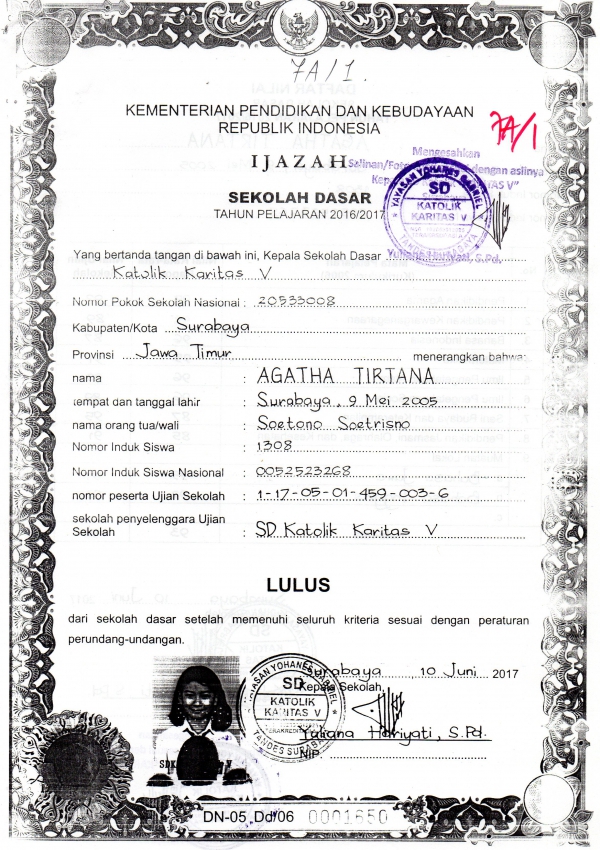 7A/1.
KEMENTERIAN PENDIDIKAN DAN KEBUDAYAAN
REPUBLIK INDONESIA
7A/1
IJAZAH
Mengesahkan
Salinan/Foto dengan aslinya
SEKOLAH DASAR
TAHUN PELAJARAN 2016/2017
YAYASAN YOHANES GABRIEL
SD
KATOLIK
KARITAS V
Yang bertanda tangan di bawah ini, Kepala Sekolah Dasar
Katolik Karitas V
Nomor Pokok Sekolah Nasional : 20533008
Kabupaten/Kota Surabaya
Provinsi Jawa Timur menerangkan bahwa:
nama : AGATHA TIRTANA
tempat dan tanggal lahir : Surabaya, 9 Mei 2005
nama orang tua/wali : Soetono Soetrisno
Nomor Induk Siswa : 1308
Nomor Induk Siswa Nasional : 0052523268
nomor peserta Ujian Sekolah : 1-17-05-01-459-003-6
sekolah penyelenggara Ujian
Sekolah : SD Katolik Karitas V
LULUS
dari sekolah dasar setelah memenuhi seluruh kriteria sesuai dengan peraturan
perundang-undangan.
Surabaya, 10 Juni 2017
Kepala Sekolah,
YAYASAN YOHANES GABRIEL
SD
KATOLIK
KARITAS V
TANDES SURABAYA
Yuliana Hariyati, S.Pd.
NIP.
DN-05 Dd/06 0001650